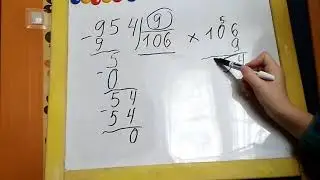 - 954 | 9
9 | 106
5
- 0
54
- 54
0
5
× 106
9
4